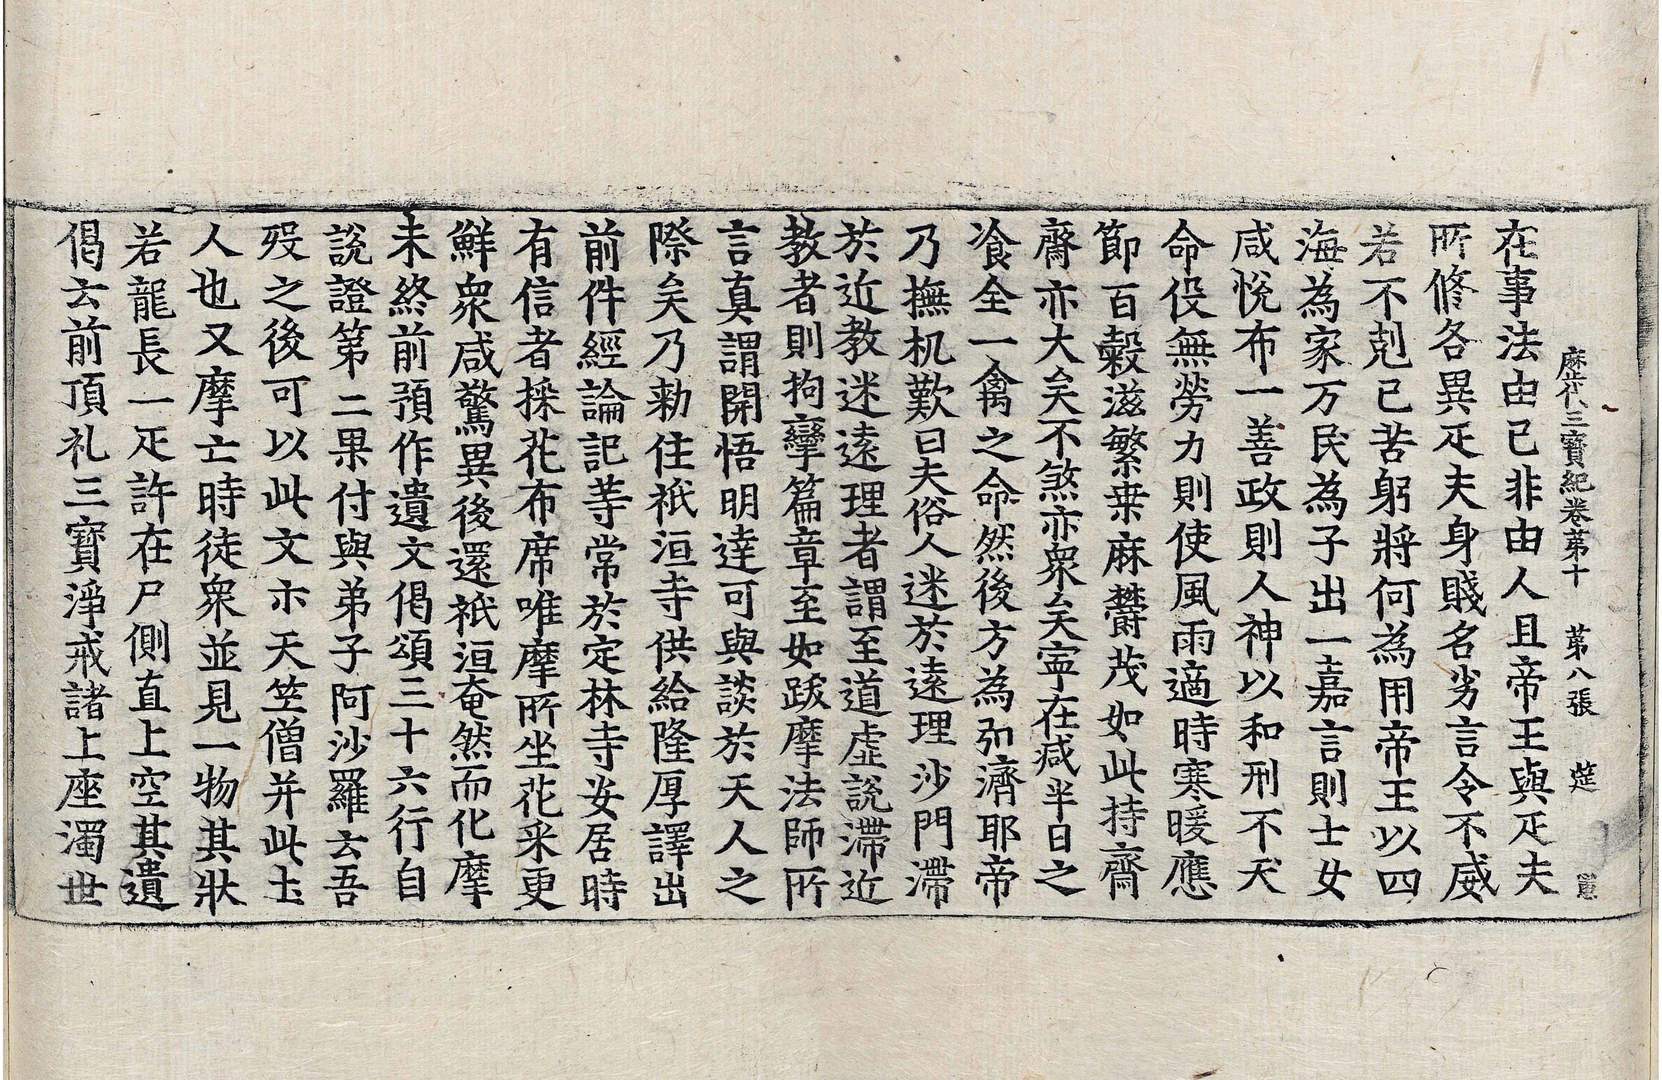 在事法由已非由人且帝王與疋夫
所修各異疋夫身賤名劣言令不威
若不剋已苦躬將何為用帝王以四
海為家万民為子出一嘉言則士女
咸悅布一善政則人神以和刑不夭
命伇無勞力則使風雨適時寒暖應
節百糓滋繁桒麻欝茂如此持齋
齋亦大矣不煞亦衆矣寧在减半日之
飡全一禽之命然後方為弘濟耶帝
乃撫机歎曰夫俗人迷於遠理沙門滯
於近教迷遠理者謂至道虛說滯近
教者則拘攣篇章至如跋摩法師所
言真謂開悟明達可與談於天人之
際矣乃勑住祇洹寺供給隆厚譯出
前件經論記䓁常於定林寺安居時
有信者採花布席唯摩所坐花采更
鮮衆咸驚異後還祇洹奄然而化摩
未終前預作遺文偈頌三十六行自
說證第二果付與弟子阿沙羅云吾
歿之後可以此文示天竺僧并此土
人也又摩亡時徒衆並見一物其狀
若龍長一疋許在尸側直上空其遺
偈云前頂礼三寶淨戒諸上座濁世
歷代三寶紀卷第十　第八張　筵